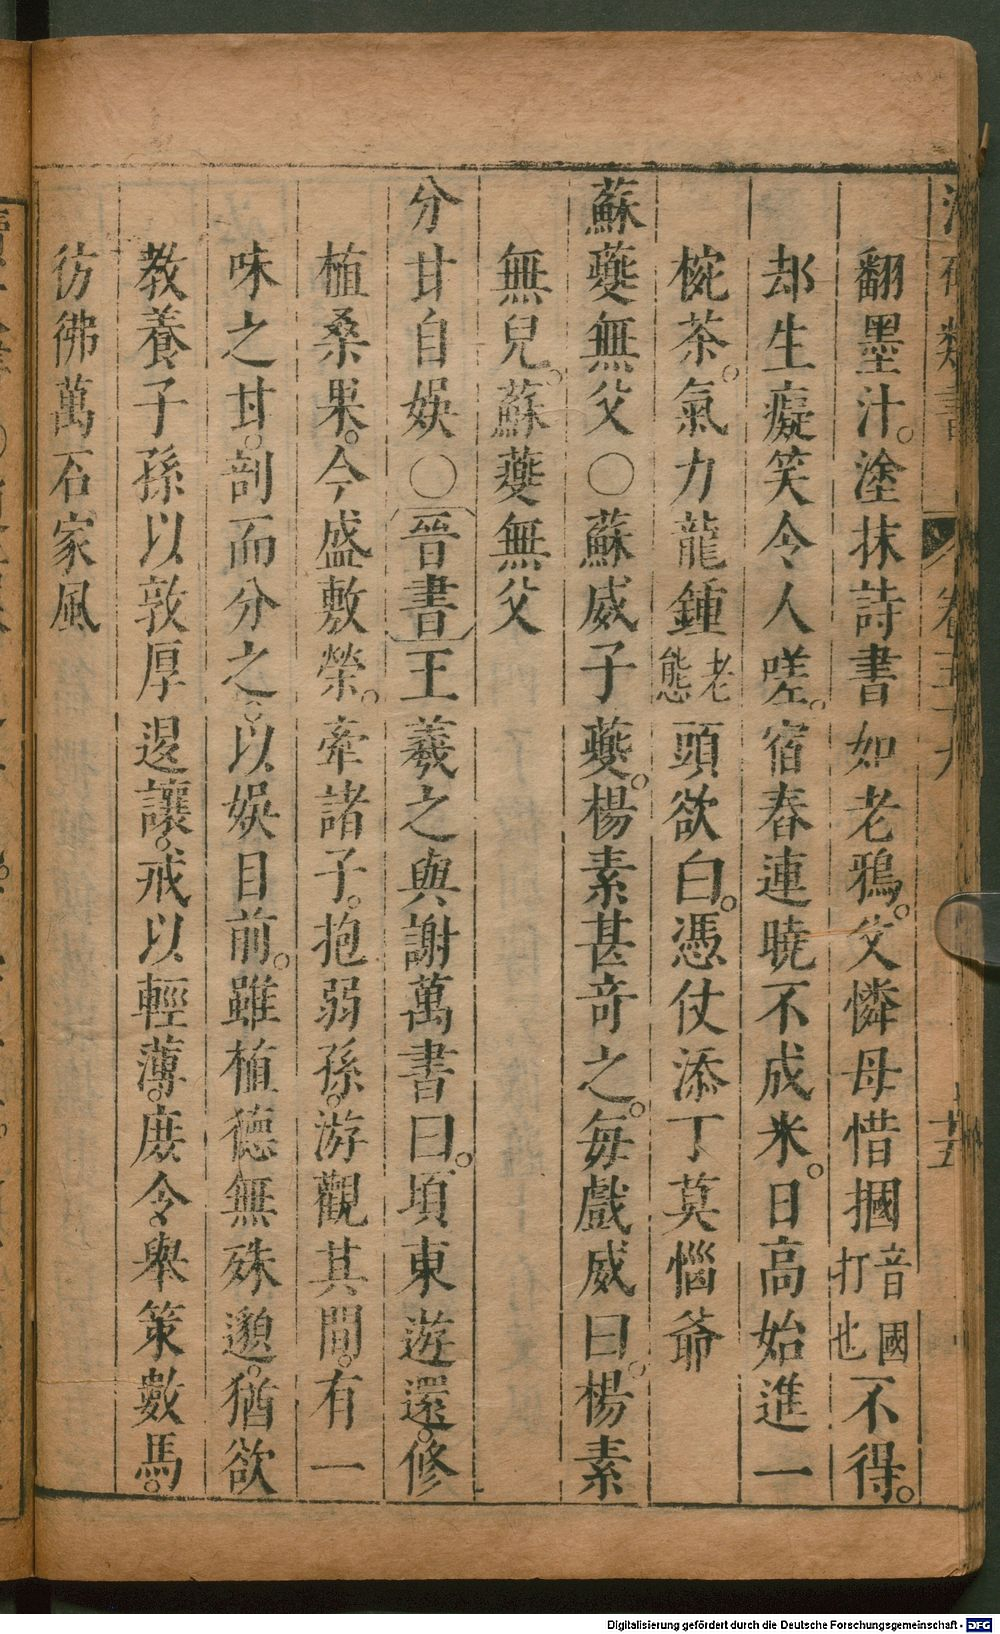 翻墨汁。塗抹詩書如老鴉。父憐母惜摑音國打也不得。
却生癡笑令人嗟。宿舂連曉不成米。日高始進一
椀茶。氣力龍鍾老態頭欲白。憑仗添丁莫惱爺
蘇夔無父〇蘇威子夔。楊素甚奇之。每戲威曰。楊素
無兒。蘇夔無父
分甘自娛〇〔晉書〕王羲之與謝萬書曰。頃東遊還。修
植桑果。今盛敷榮。牽諸子。抱弱孫。游觀其間。有一
味之甘。剖而分之。以娛目前。雖植德無殊邈。猶欲
教養子孫以敦厚退讓。戒以輕薄。庶令舉策數馬。
彷彿萬石家風
Digitalisierung gefördert durch die Deutsche Forschungsgemeinschaft - DFG